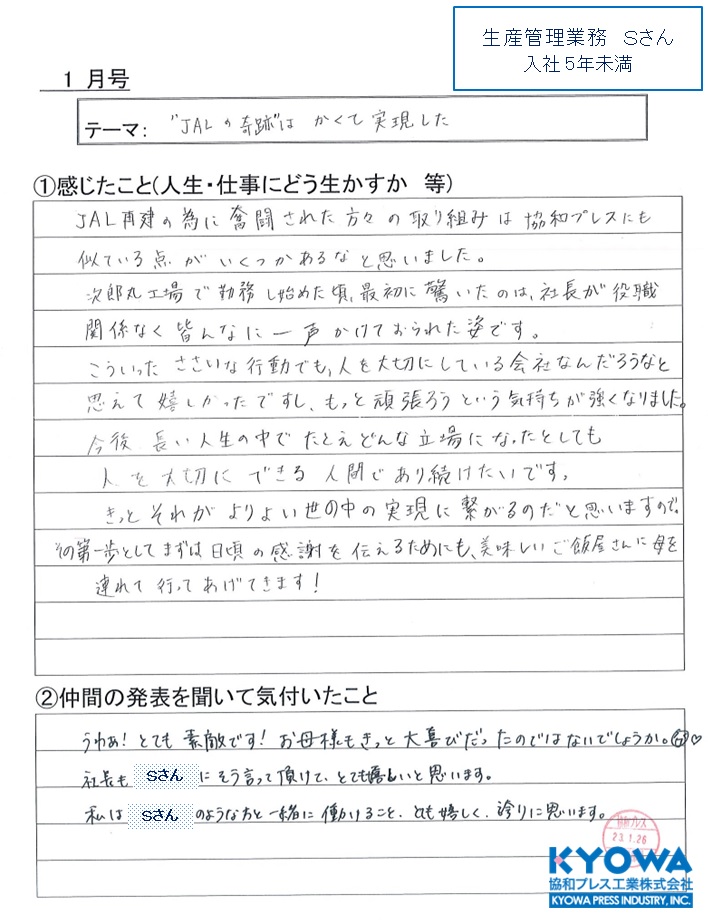 生産管理業務　Sさん
入社5年未満
1 月号
テーマ: "JALの奇跡"は かくて実現した
①感じたこと(人生・仕事にどう生かすか　等)
JAL再建の為に奮闘された方々の取り組みは協和プレスにも
似ている点がいくつかあるなと思いました。
次郎丸工場で勤務し始めた頃、最初に驚いたのは、社長が役職
関係なく皆んなに一声かけておられた姿です。
こういった ささいな行動でも、人を大切にしている会社なんだろうなと
思えて嬉しかったですし、もっと頑張ろうという気持ちが強くなりました。
今後、長い人生の中でたとえどんな立場になったとしても
人を大切にできる人間であり続けたいです。
きっとそれがよりよい世の中の実現に繋がるのだと思いますので、
その第一歩としてまずは日頃の感謝を伝えるためにも、美味しいご飯屋さんに母を
連れて行ってあげてきます!
②仲間の発表を聞いて気付いたこと
うわぁ!とても素敵です!お母様もきっと大喜びだったのではないでしょうか。
社長も Sさん にそう言って頂けて、とても嬉しいと思います。
私は Sさん のような方と一緒に働けること、とても嬉しく、誇りに思います。
協和プレス
23.1.26
KYOWA
協和プレス工業株式会社
KYOWA PRESS INDUSTRY, INC.